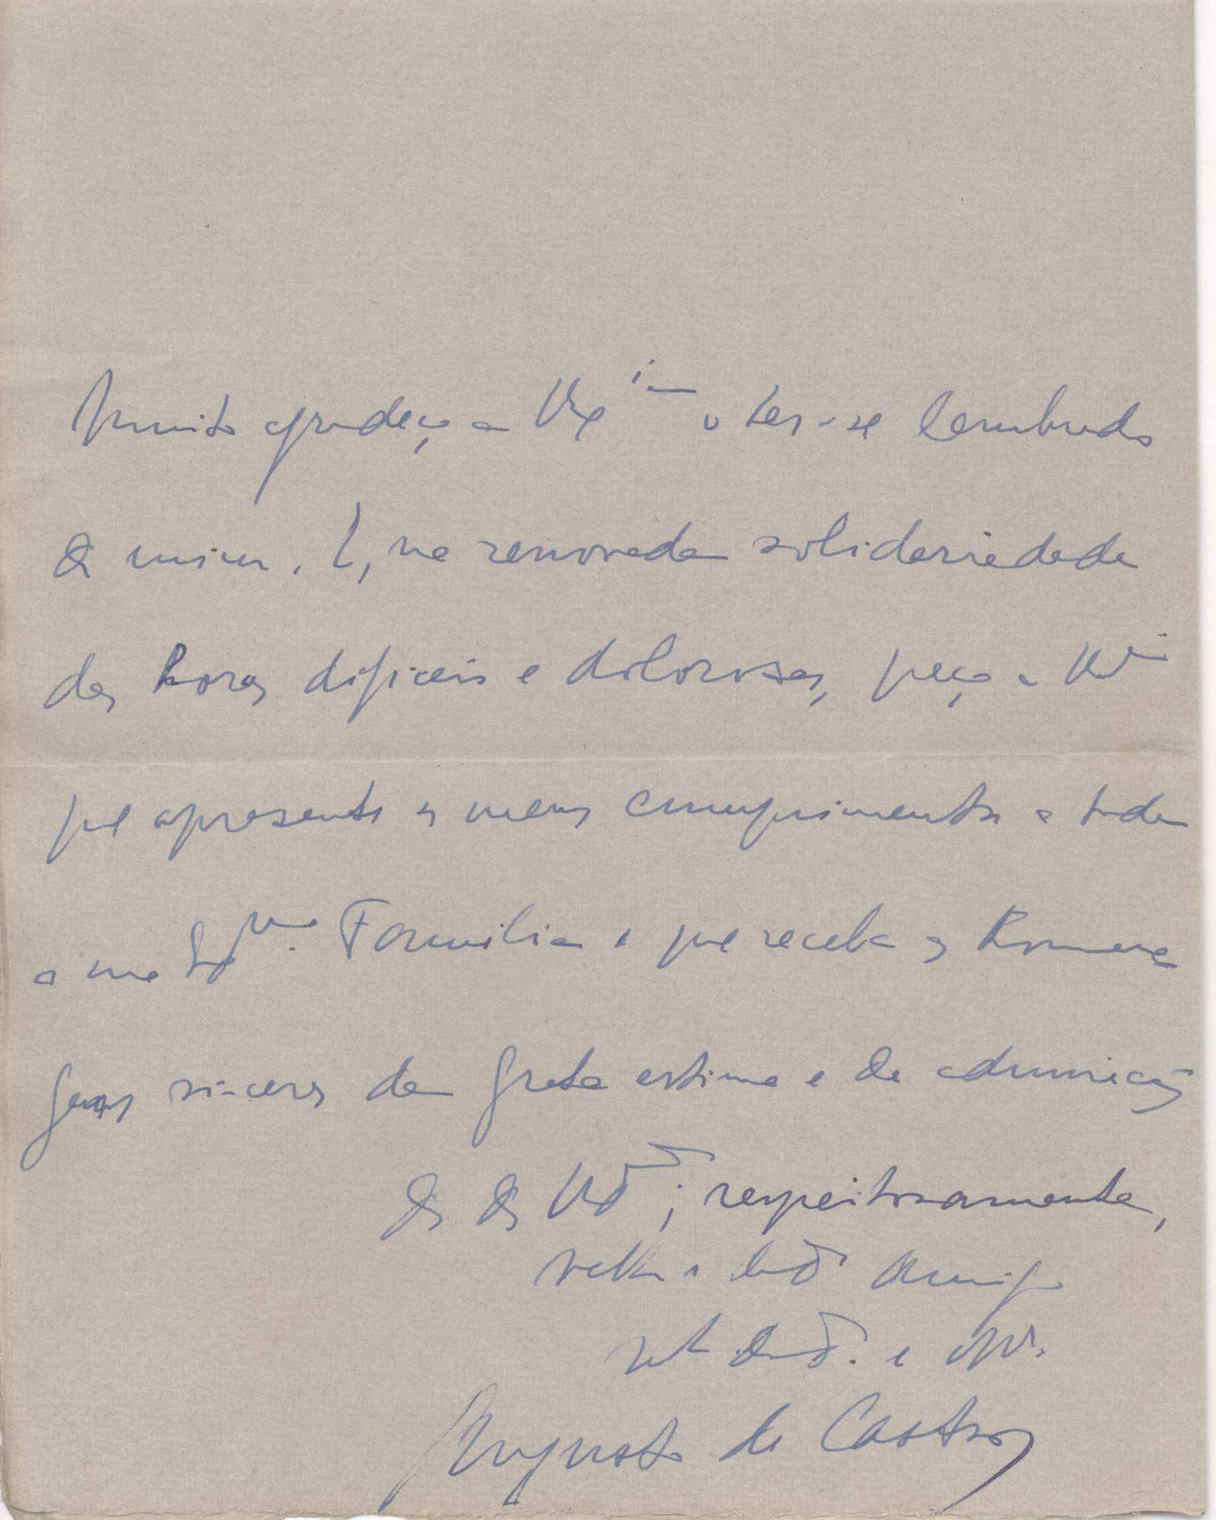 Muito agradeço a V. Exª o ter-se lembrado
de mim. E, na renovada solidariedade
das horas difíceis e dolorosas, peço a
que apresente os meus cumprimentos a toda
a sua Exma. Família e que receba as homena
gens sinceras da grata estima e da admiração
de de respeitosamente,
velho e amigo
Augusto de Castro